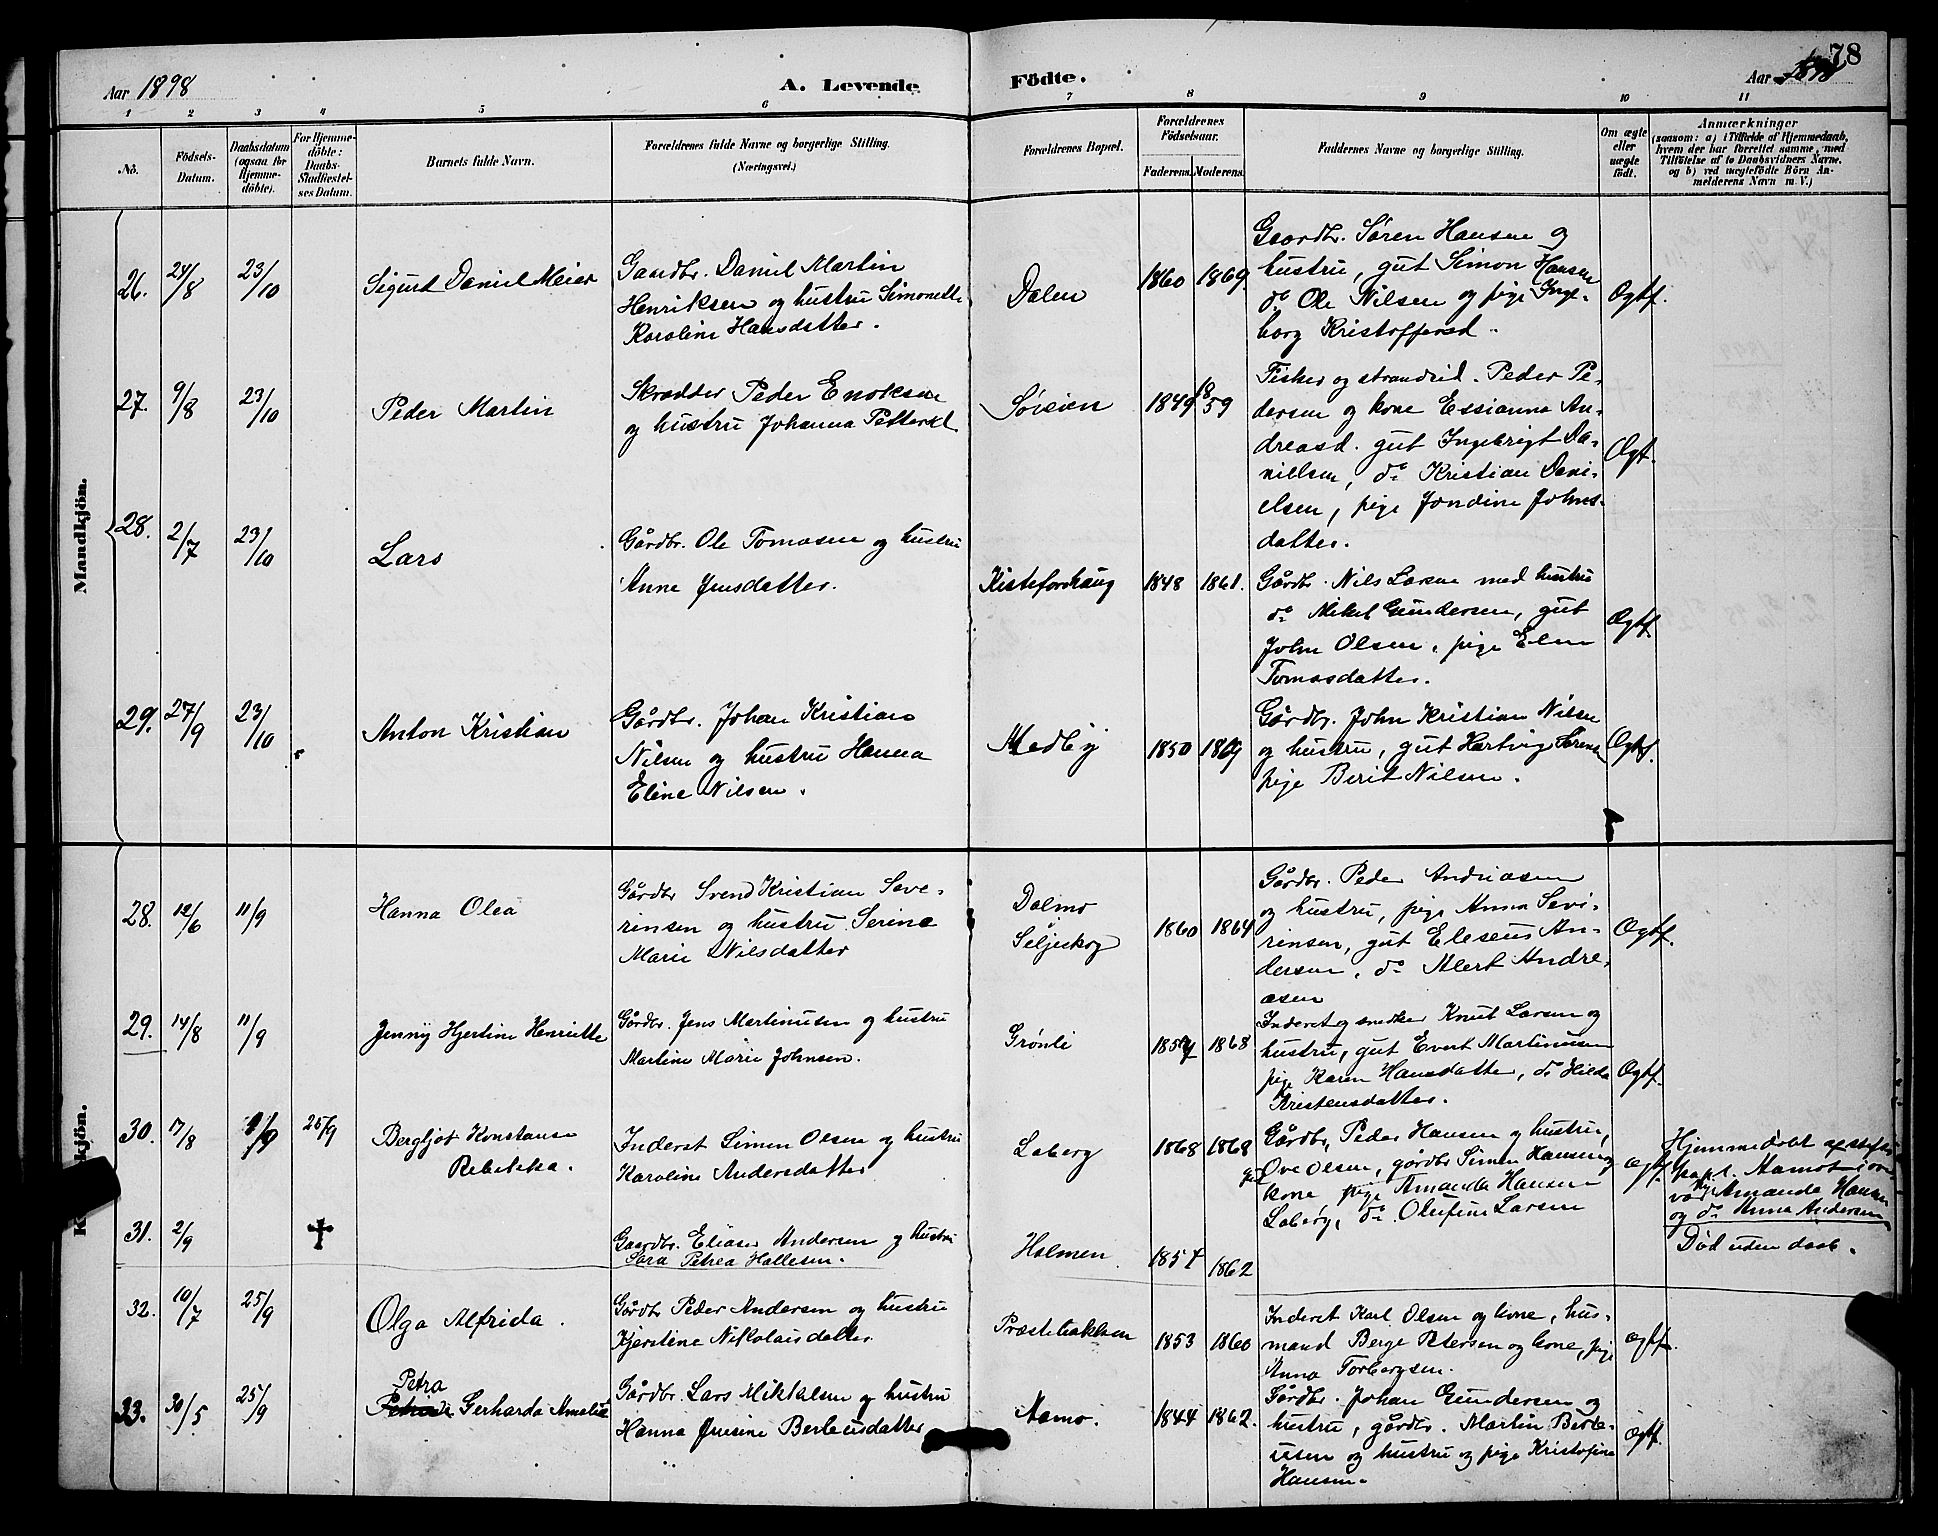 78
Aar 1898
A. Levende
Födte.
Aar 1898
1 2 3 4 5 6 7 8 9 10 11
No.
Födsels-
Datum.
Daabsdatum
(ogsaa for
Hjemme-
döbte).
For Hjemme-
döbte:
Daabs-
Stadfæstel-
ses Datum.
Barnets fulde Navn.
Forældrenes fulde Navne og borgerlige Stilling.
(Næringsvei.)
Forældrenes Bopæl.
Forældrenes
Födselsaar.
Faderens.
Moderens.
Faddernes Navne og borgerlige Stilling.
Om ægte
eller
uægte
født.
Anmærkninger
(saasom: a) i Tilfælde af Hjemmedaab,
hvem der har forrettet samme, med
Tilföielse af to Daabsvidners Navne.
og b) ved uægtefödte Börn An-
melderens Navn m. V.)
Mandkjön.
26. 24/8 23/10
Sigurd Daniel Meier
Gaardbr. Daniel Martin
Henriksen og hustru Simonette
Karoline Hansdatter.
Dalen
1860 1869
Gaardbr. Søren Hansen og
hustru, gut Simon Hansen
do Ole Nilsen og pige Inge-
borg Kristoffersd.
Ægtf.
27. 9/8 23/10
Peder Martin
Skrædder Peder Enoksen
og hustru Johanna Pettersd
Søieien
1849 1859
Fisker og strandsid. Peder Pe-
dersen og kone Essianna An-
dreasd. gut Ingebrigt Da-
nielsen, do Kristian Dani-
elsen, pige Jondine Johns-
datter.
Ægt.
28. 2/7 23/10
Lars
Gårdbr. Ole Tomasen og hustru
Anne Jensdatter.
Kisteforhaug
1848 1861.
Gårdbr. Nils Larsen med hustru
do Mikel Gundersen, gut
John Olsen, pige Elen
Tomasdatter.
Ægtf.
29. 27/9 23/10
Anton Kristian
Gårdbr. Johan Kristian
Nilsen og hustru Hanna
Eline Nilsen.
Medby
1850 1869
Gårdbr. John Kristian Nilsen
og hustru, gut Hartvig Sørensen
pige Berit Nilsen.
Ægtf.
28. 12/6 11/9
Hanna Olea
Gårdbr Svend Kristian Seve-
rinsen og hustru Serine
Marie Nilsdatter
Dalmo
Seljeskog
1860 1864
Gårdbr. Peder Andreasen
og hustru, pige Anna Sevi-
rinsen, gut Eleseus An-
dersen, do Alert Andre-
asen
Ægtf.
29. 14/8 11/9
Jenny Hjertine Henriette
Gårdbr. Jens Martinusen og hustru
Martine Marie Johnsen.
Grønli
1857 1868
Inderst og snedker Knut Larsen og
hustru, gut Evert Martinusen
pige Karen Hansdatter, do Hilda
Kristensdatter.
Ægtf.
30. 17/8 25/9
Bergljot Konstanse
Rebekka.
Inderst Simen Olsen og hustru
Karoline Andersdatter
Laberg
1868 1868
Gårdbr. Peder Hansen og hustru,
gut Ove Olsen, gårdbr Simen Hansen og
kone pige Amanda Hansen
Laberg, do Olufine Larsen
ægtf.
Hjemmedøbt af stifts-
kapl. Aamot i over-
vær Amanda Hansen
og do Anna Andersen
31. 2/9 ✝
Gaardbr. Elias Andersen og hustru
Sara Petrea Hallesen.
Holmen
1857 1862
Død uden daab.
32. 10/7 25/9
Olga Alfrida.
Gårdbr Peder Andersen og hustru
Kjerstine Nikolaisdatter
Præstebakken
1853 1860
Inderst Karl Olsen og kone, hus-
mand Berge Petersen og kone, pige
Anna Torbergsen.
ægtf.
33. 30/5 25/9
Petra
Gerharda Amalie
Gårdbr. Lars Mikkelsen og hustru
Hanna Jensine Berteusdatter
Aamo.
1844 1862.
Gårdbr. Johan Gundersen og
hustru, gårdbr. Martin Berte-
usen og hustru og pige Kristofine
Hansen.
Ægtf.